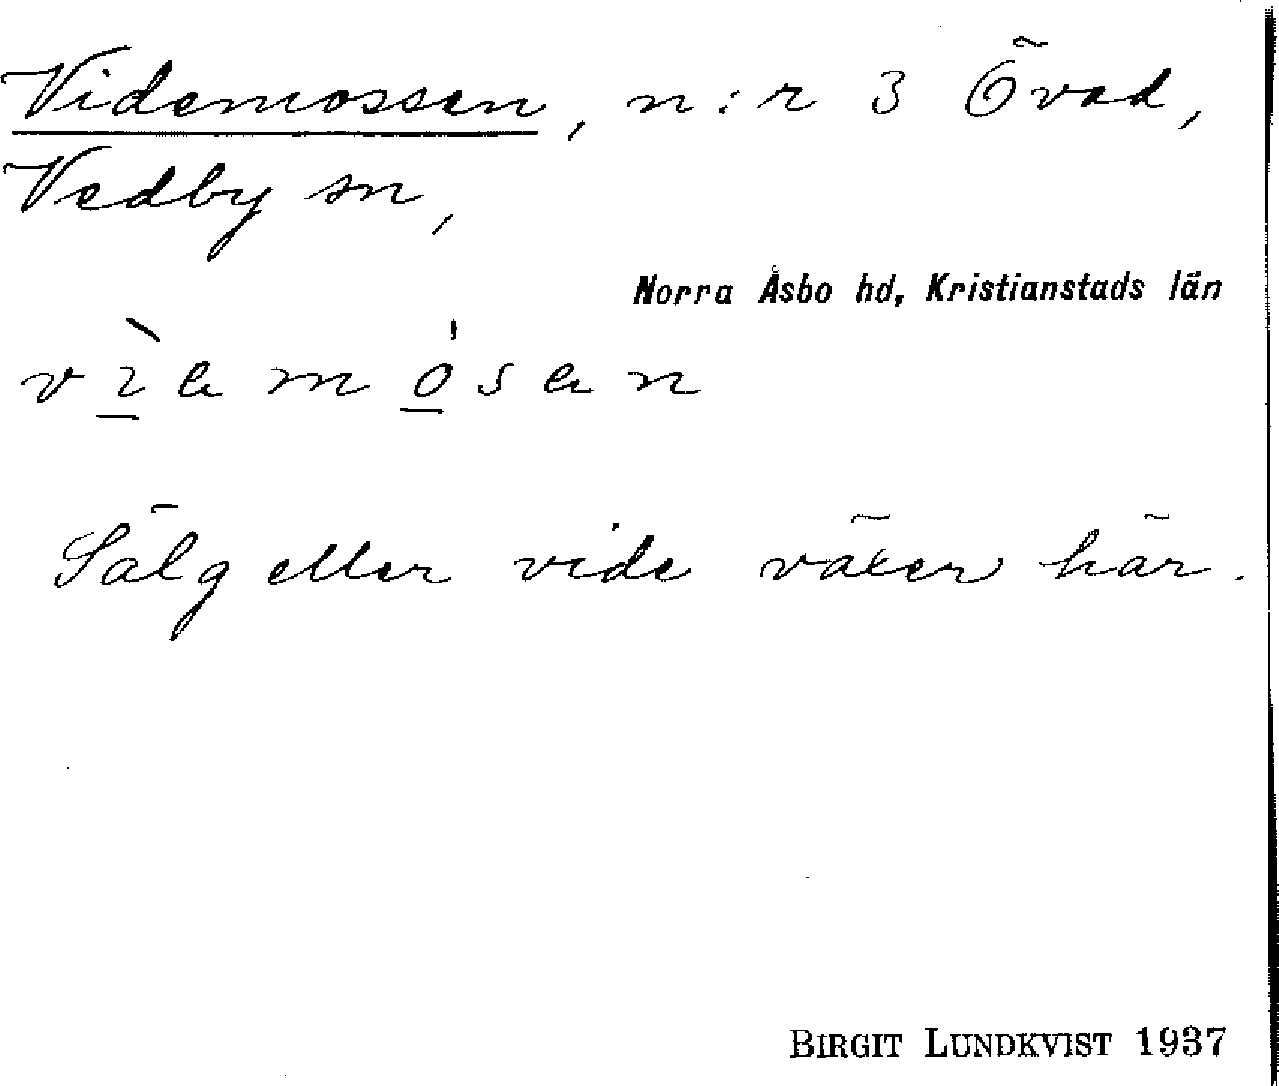 Videmossen, n:r 3 Övad,
Vedby sn,
Norra Åsbo hd, Kristianstads län
vı̀ɐmósɐn
Sälg eller vide växer här.
BIRGIT LUNDKVIST 1937